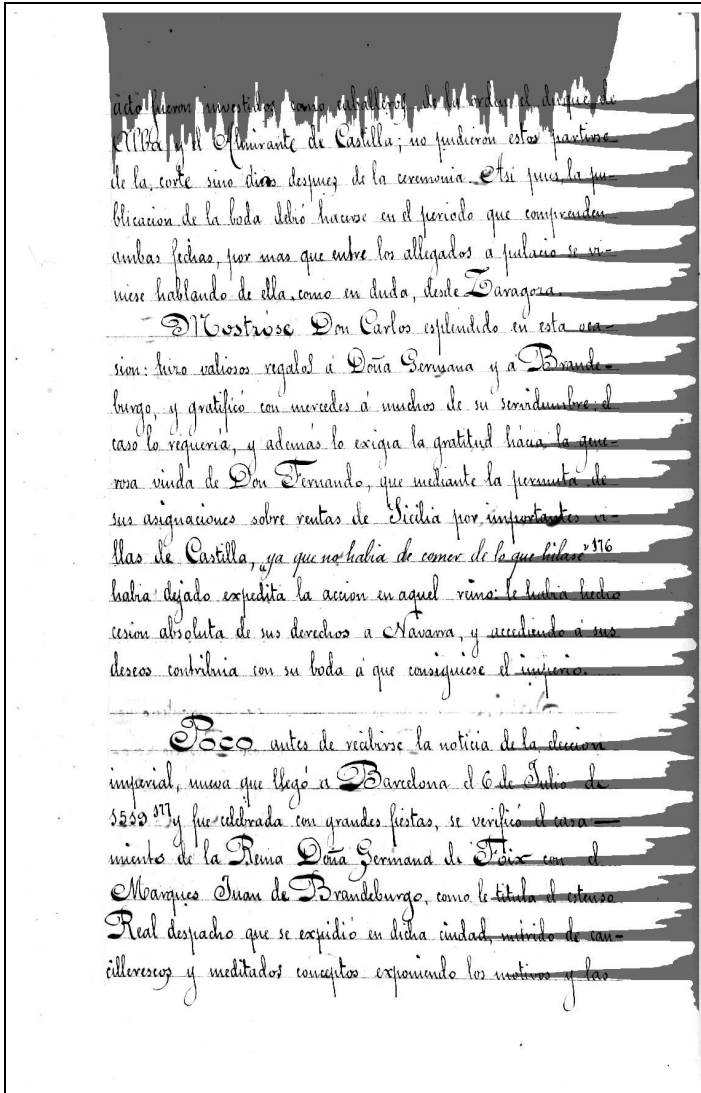 acto fueron investidos como caballeros de la orden el duque de
Alba y el Almirante de Castilla; no pudieron estos partirse
de la corte sino dias despues de la ceremonia. Asi pues, la pu-
blicacion de la boda debió hacerse en el periodo que comprenden
ambas fechas, por mas que entre los allegados a palacio se vi-
niese hablando de ella, como en duda, desde Zaragoza.
Mostróse Don Carlos esplendido en esta oca-
sion: hizo valiosos regalos á Doña Germana y á Brande-
burgo, y gratificó con mercedes á muchos de su servidumbre; el
caso lo requeria, y además lo exigia la gratitud hácia la gene-
rosa viuda de Don Fernando, que mediante la permuta de
sus asignaciones sobre rentas de Sicilia por importantes vi-
llas de Castilla, „ya que no habia de comer de lo que hilase" 176
habia dejado expedita la accion en aquel reino: le habia hecho
cesion absoluta de sus derechos a Navarra, y accediendo á sus
deseos contribuia con su boda á que consiguiese el imperio.
Poco antes de recibirse la noticia de la eleccion
imperial, nueva que llegó a Barcelona el 6 de Julio de
1519 177 y fue celebrada con grandes fiestas, se verificó el casa-
miento de la Reina Doña Germana de Foix con el
Marques Juan de Brandeburgo, como le titula el estenso
Real despacho que se expidió en dicha ciudad, nutrido de can-
cillerescos y meditados conceptos exponiendo los motivos y las